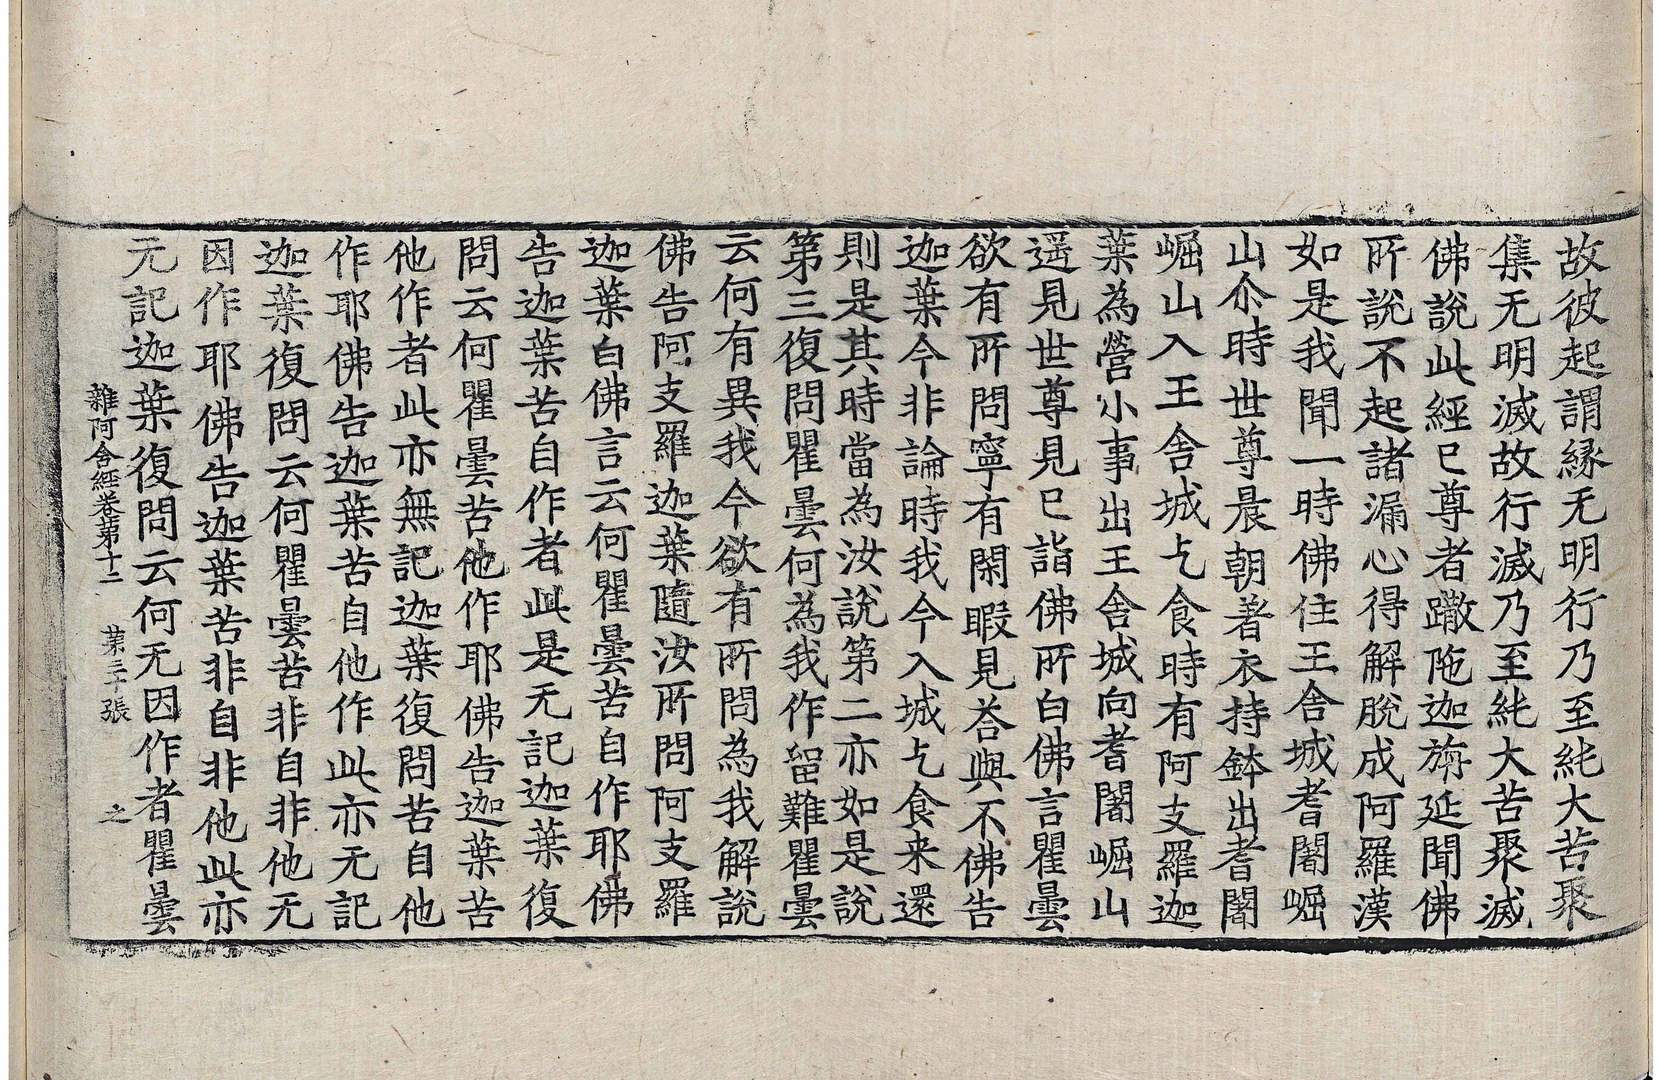 故彼起謂緣无明行乃至純大苦聚
集无明滅故行滅乃至純大苦聚滅
佛說此經已尊者𨅖陁迦旃延聞佛
所說不起諸漏心得解脫成阿羅漢
如是我聞一時佛住王舍城耆闍崛
山尒時世尊晨朝著衣持鉢出耆闍
崛山入王舍城乞食時有阿支羅迦
葉為營小事出王舍城向耆闍崛山
遥見世尊見已詣佛所白佛言瞿曇
欲有所問寧有閑暇見荅與不佛告
迦葉今非論時我今入城乞食来還
則是其時當為汝說第二亦如是說
第三復問瞿曇何為我作留難瞿曇
云何有異我今欲有所問為我解說
佛告阿支羅迦葉隨汝所問阿支羅
迦葉白佛言云何瞿曇苦自作耶佛
告迦葉苦自作者此是无記迦葉復
問云何瞿曇苦他作耶佛告迦葉苦
他作者此亦無記迦葉復問苦自他
作耶佛告迦葉苦自他作此亦无記
迦葉復問云何瞿曇苦非自非他无
因作耶佛告迦葉苦非自非他此亦
无記迦葉復問云何无因作者瞿曇
雜阿含經卷第十二 第三十張 之